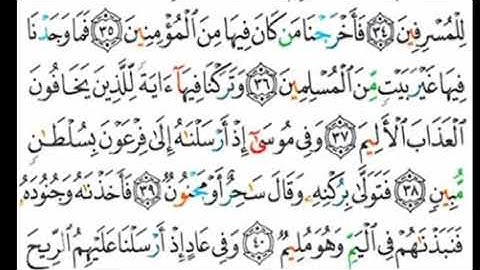 لِلْمُسْرِفِينَ ﴿٣٤﴾ فَأَخْرَجْنَا مَن كَانَ فِيهَا مِنَ ٱلْمُؤْمِنِينَ ﴿٣٥﴾ فَمَا وَجَدْنَا
فِيهَا غَيْرَ بَيْتٍ مِّنَ ٱلْمُسْلِمِينَ ﴿٣٦﴾ وَتَرَكْنَا فِيهَآ ءَايَةً لِّلَّذِينَ يَخَافُونَ
ٱلْعَذَابَ ٱلْأَلِيمَ ﴿٣٧﴾ وَفِى مُوسَىٰٓ إِذْ أَرْسَلْنَٰهُ إِلَىٰ فِرْعَوْنَ بِسُلْطَٰنٍ
مُّبِينٍ ﴿٣٨﴾ فَتَوَلَّىٰ بِرُكْنِهِۦ وَقَالَ سَٰحِرٌ أَوْ مَجْنُونٌ ﴿٣٩﴾ فَأَخَذْنَٰهُ وَجُنُودَهُۥ
فَنَبَذْنَٰهُمْ فِى ٱلْيَمِّ وَهُوَ مُلِيمٌ ﴿٤٠﴾ وَفِى عَادٍ إِذْ أَرْسَلْنَا عَلَيْهِمُ ٱلرِّيحَ